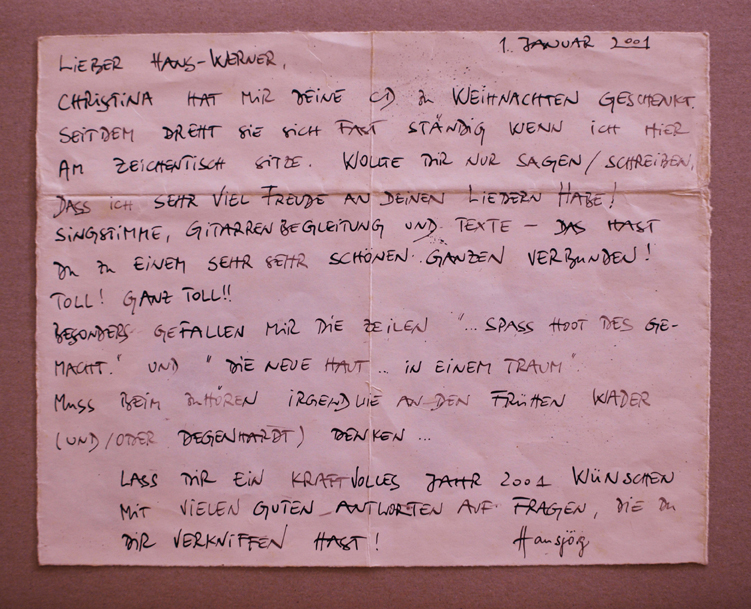 1. JANUAR 2001
LIEBER HANS-WERNER,
CHRISTINA HAT MIR DEINE CD ZU WEIHNACHTEN GESCHENKT.
SEITDEM DREHT SIE SICH FAST STÄNDIG WENN ICH HIER
AM ZEICHENTISCH SITZE. WOLLTE DIR NUR SAGEN/SCHREIBEN,
DASS ICH SEHR VIEL FREUDE AN DEINEN LIEDERN HABE!
SINGSTIMME, GITARRENBEGLEITUNG UND TEXTE – DAS HAST
DU ZU EINEM SEHR SEHR SCHÖNEN GANZEN VERBUNDEN!
TOLL! GANZ TOLL!!
BESONDERS GEFALLEN MIR DIE ZEILEN "... SPASS HOOT DES GE-
MACHT." UND "DIE NEUE HAUT ... IN EINEM TRAUM".
MUSS BEIM ZUHÖREN IRGENDWIE AN DEN FRÜHEN WADER
(UND/ODER DEGENHARDT) DENKEN ...
LASS DIR EIN KRAFTVOLLES JAHR 2001 WÜNSCHEN
MIT VIELEN GUTEN ANTWORTEN AUF FRAGEN, DIE DU
DIR VERKNIFFEN HAST! Hansjörg